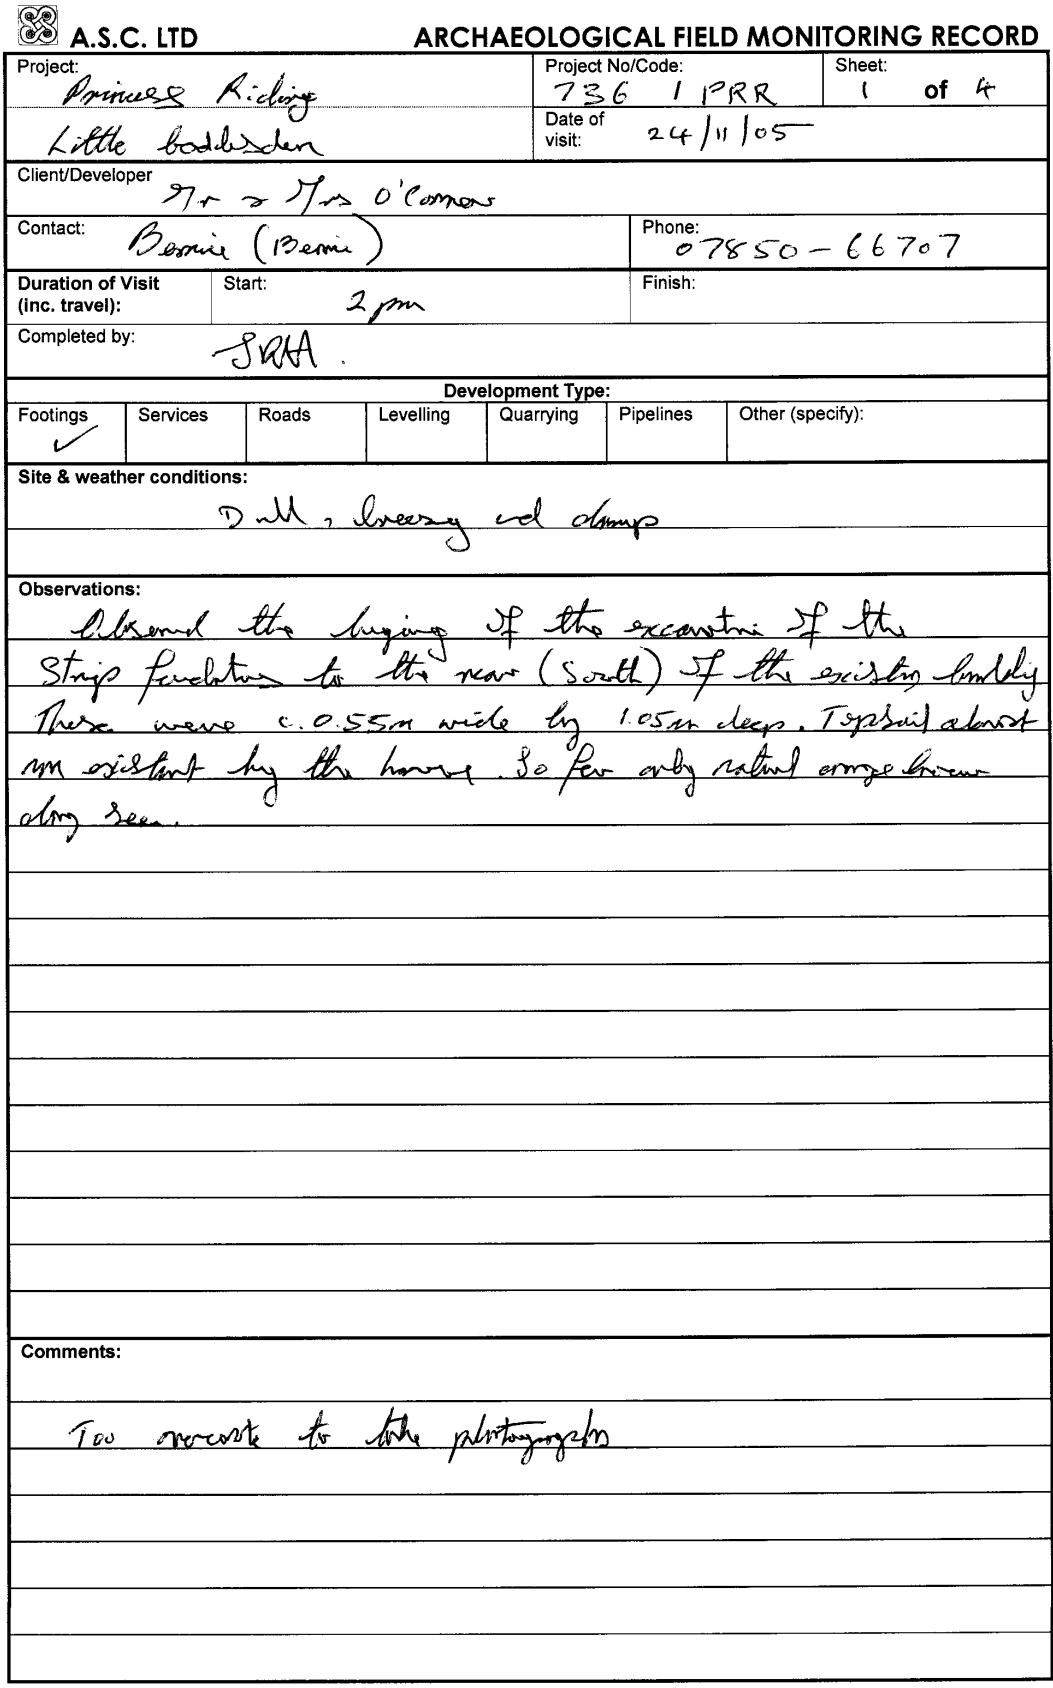 A.S.C. LTD
ARCHAEOLOGICAL FIELD MONITORING RECORD
Project:
Princess Riding
Little Gaddesden
Project No/Code:
736 / PRR
Sheet:
1 of 4
Date of
visit:
24/11/05
Client/Developer
Mr & Mrs O'Connor
Contact:
Bernie (Bernie)
Phone:
07850-66707
Duration of Visit
(inc. travel):
Start:
2 pm
Finish:
Completed by:
JRHA.
Development Type:
Footings ✓
Services
Roads
Levelling
Quarrying
Pipelines
Other (specify):
Site & weather conditions:
Dull, breezy and damp
Observations:
Observed the of the excavation of the
Strip foundations to the rear (South) of the existing building
These were c. 0.55m wide by 1.05m deep. Topsoil almost
non existant by the house. So far only natural orange brown
clay seen.
Comments:
Too overcast to take photographs